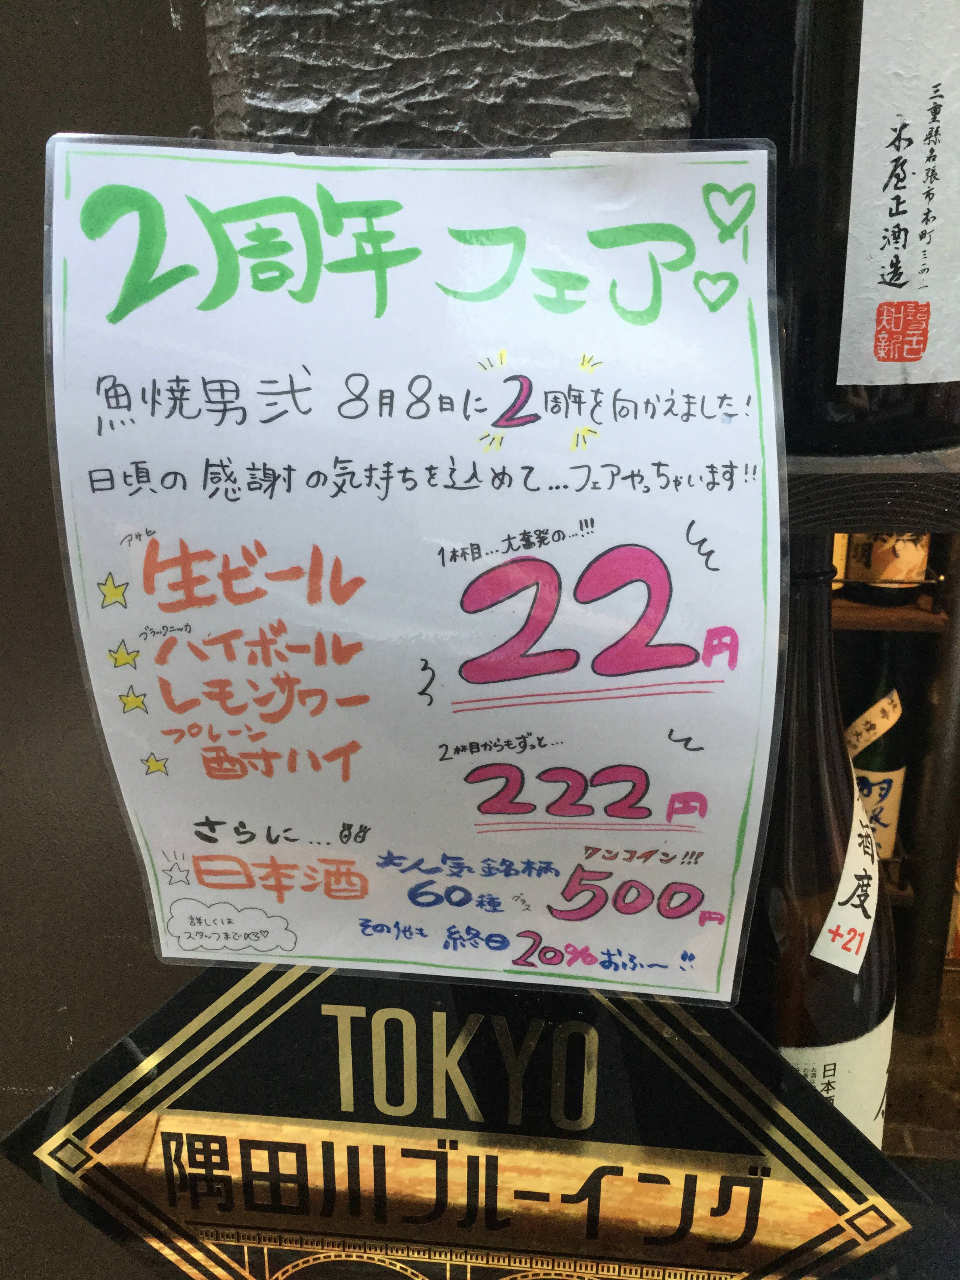 2周年フェア
魚焼男弐 8月8日に2周年を向かえました!
日頃の感謝の気持ちを込めて...フェアやっちゃいます!!
アサヒ
生ビール
ブラックニッカ
ハイボール
レモンサワー
プレーン
酎ハイ
1杯目...大奮発の...!!!
22円
2杯目からもずっと...
222円
さらに...
日本酒
大人気銘柄
60種
プラス
ワンコイン!!!
500円
詳しくは
スタッフまで
その他も 終日 20%おふ〜
三重縣名張市本町
木屋正酒造
酒度
+21
日本酒
TOKYO
隅田川ブルーイング